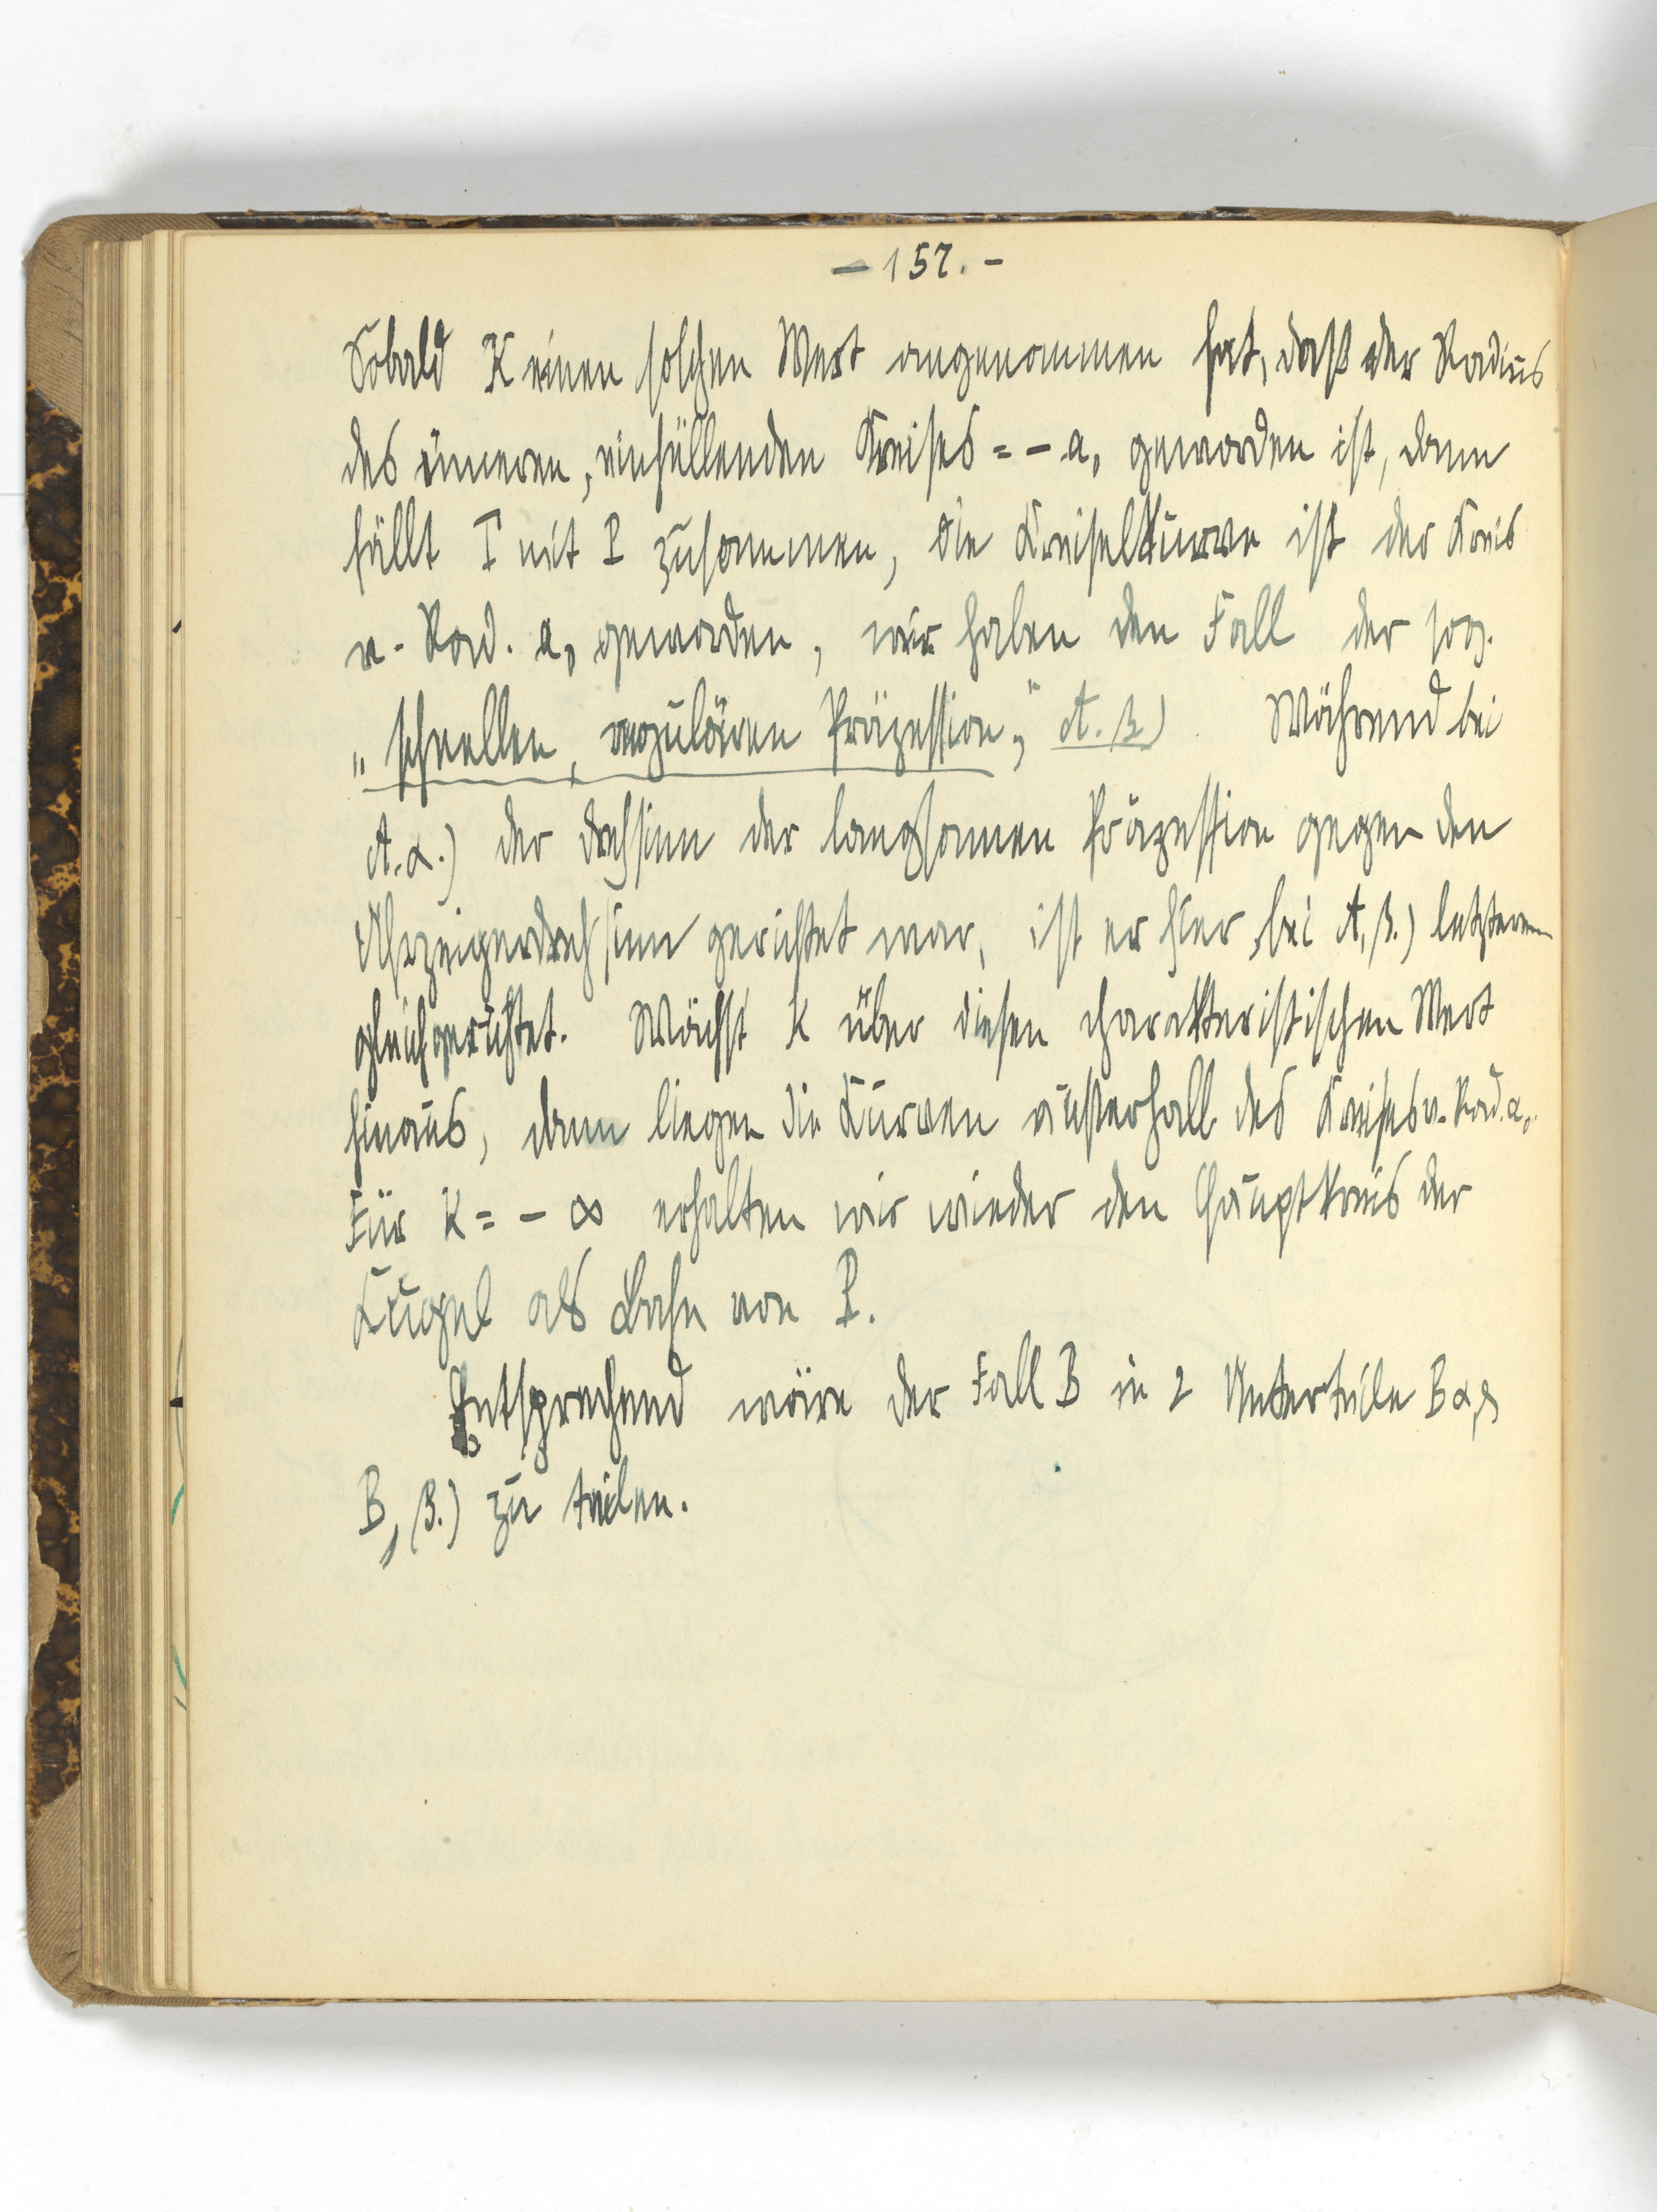 - 157. -
Sobald K einen solchen Wert angenommen hat, daß der Radius
des inneren, einhüllenden Kreises = - a₀ geworden ist, dann
fällt T mit P zusammen, die Kreiselkurve ist der Kreis
v. Rad. a₀ geworden, wir haben den Fall der sog.
„schnellen, regulären Präzession," A. β.) Während bei
A. α.) der Drehsinn der langsamen Präzession gegen den
Uhrzeigerdrehsinn gerichtet war, ist er hier, bei A, β.) letzterem
gleichgerichtet. Wächst K über diesen charakteristischen Wert
hinaus, dann liegen die Kurven außerhalb des Kreises v. Rad. a₀.
Für K = - ∞ erhalten wir wieder den Hauptkreis der
Kugel als Bahn von P.
Entsprechend wäre der Fall B in 2 Unterteile B α, &
B, β.) zu teilen.